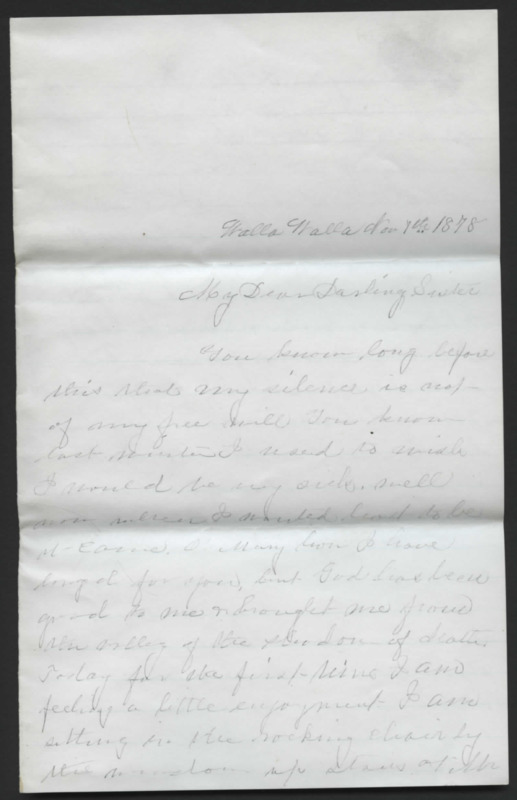 Walla Walla Nov 7th 1878
My Dear Darling Sister
You know long before
this that my silence is not
of my free will You know
last winter I used to wish
I would be sick. well
now when I wanted least to be
it came. O Mary how I have
longed for you, but God has been
good to me & brought me from
the valley of the shadow of death.
Today for the first time I am
feeling a little enjoyment I am
sitting in the rocking chair by
the window up stairs